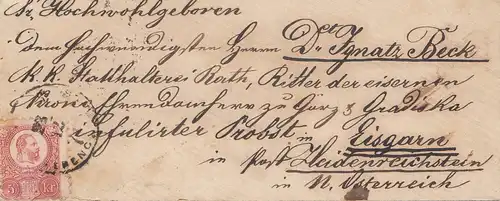 Sr Hochwohlgeboren
dem Hochwürdigsten Herrn Dr Ignatz Beck
k. k. Statthalterei Rath, Ritter der eisernen
Krone, Ehrendomherr zu Görz & Gradiska
infulirter Probst in Eisgarn
in Post Heidenreichstein
in N. Österreich
5